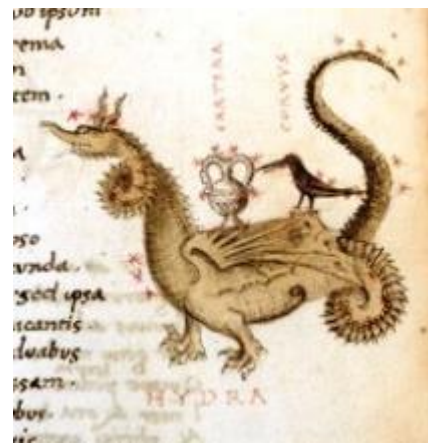 uo ipsum
rema
n
rem.
a
n.
pso
unda.
quod ipsa
acantis
duabus
ssam.
bus.
CRATERA
CORVVS
HYDRA